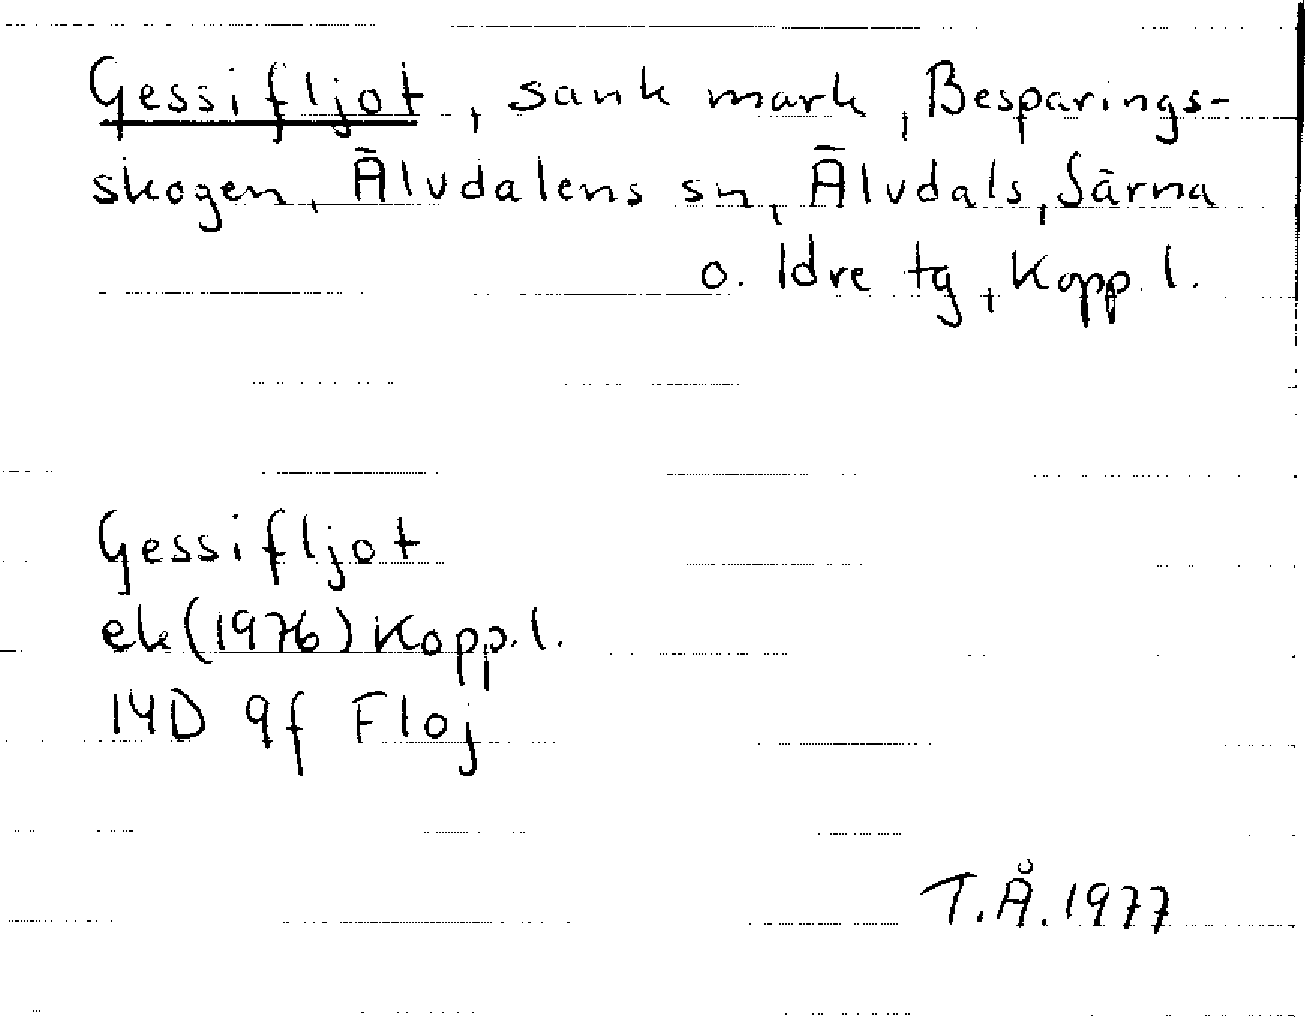 Gessifljot, sank mark, Besparings-
skogen, Älvdalens sn, Älvdals, Särna
o. Idre tg, Kopp. l.
Gessifljot
ek (1976) Kopp. l.
14D 9f Floj
T.Å. 1977